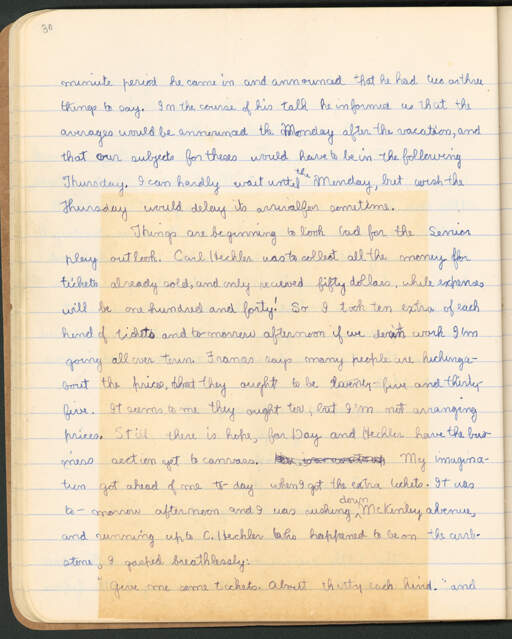 30
minute period he came in and announced that he had two or three
things to say. In the course of his talk he informed us that the
averages would be announced the Monday after the vacation, and
that our subjects for theses would have to be in the following
Thursday. I can hardly wait until the Monday, but wish the
Thursday would delay its arrival for sometime.
Things are beginning to look bad for the Senior
play outlook. Carl Hechler was to collect all the money for
tickets already sold, and only recieved fifty dollars, while expenses
will be one hundred and forty! So I took ten extra of each
kind of tickets and to-morrow afternoon if we don't work I'm
going all over town. Frances says many people are kicking a-
bout the price, that they ought to be twenty-five and thirty-
five. It seems to me they ought too, but I'm not arranging
prices. Still there is hope, for Day and Hechler have the bus-
iness section yet to canvass. My imagina-
tion got ahead of me to-day when I got the extra tickets. It was
to-morrow afternoon and I was rushing down McKinley avenue,
and running up to C. Hechler who happened to be on the curb-
stone, I gasped breathlessly:
"Give me some tickets. About thirty each kind." and